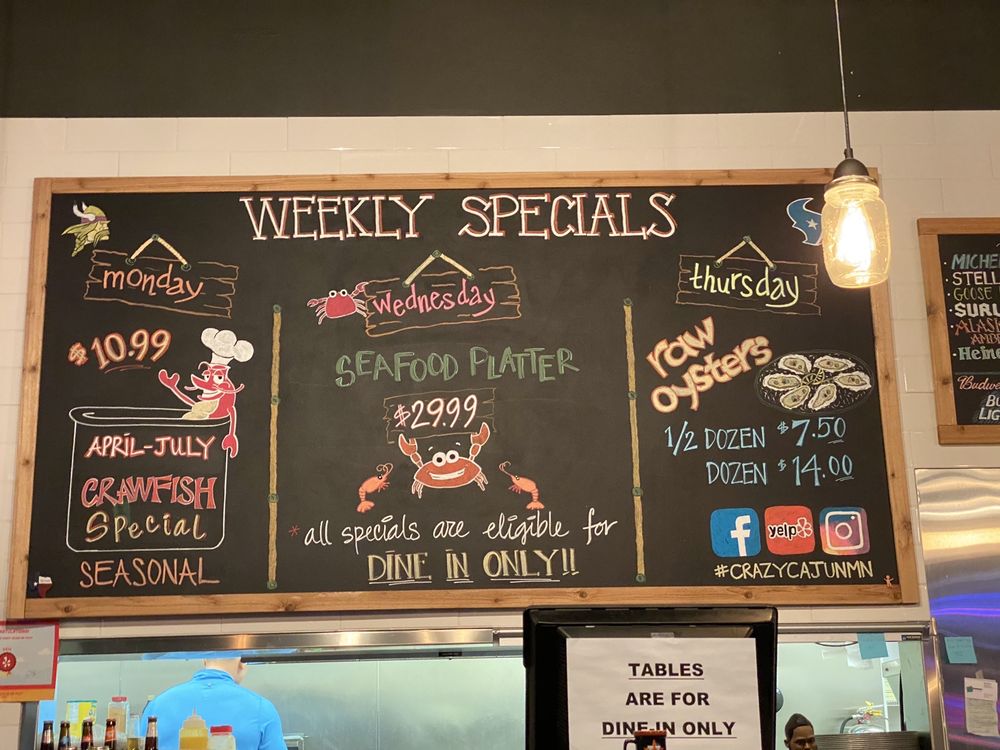 WEEKLY SPECIALS
monday
$10.99
APRIL-JULY
CRAWFISH
Special
SEASONAL
wednesday
SEAFOOD PLATTER
$29.99
*all specials are eligible for
DINE IN ONLY!!
thursday
raw
oysters
1/2 DOZEN $7.50
DOZEN $14.00
f yelp
#CRAZYCAJUNMN
TABLES
ARE FOR
DINE-IN ONLY
STELL
GOOSE
SURL
ALAS
AMB
Hein
Budwe
LIG